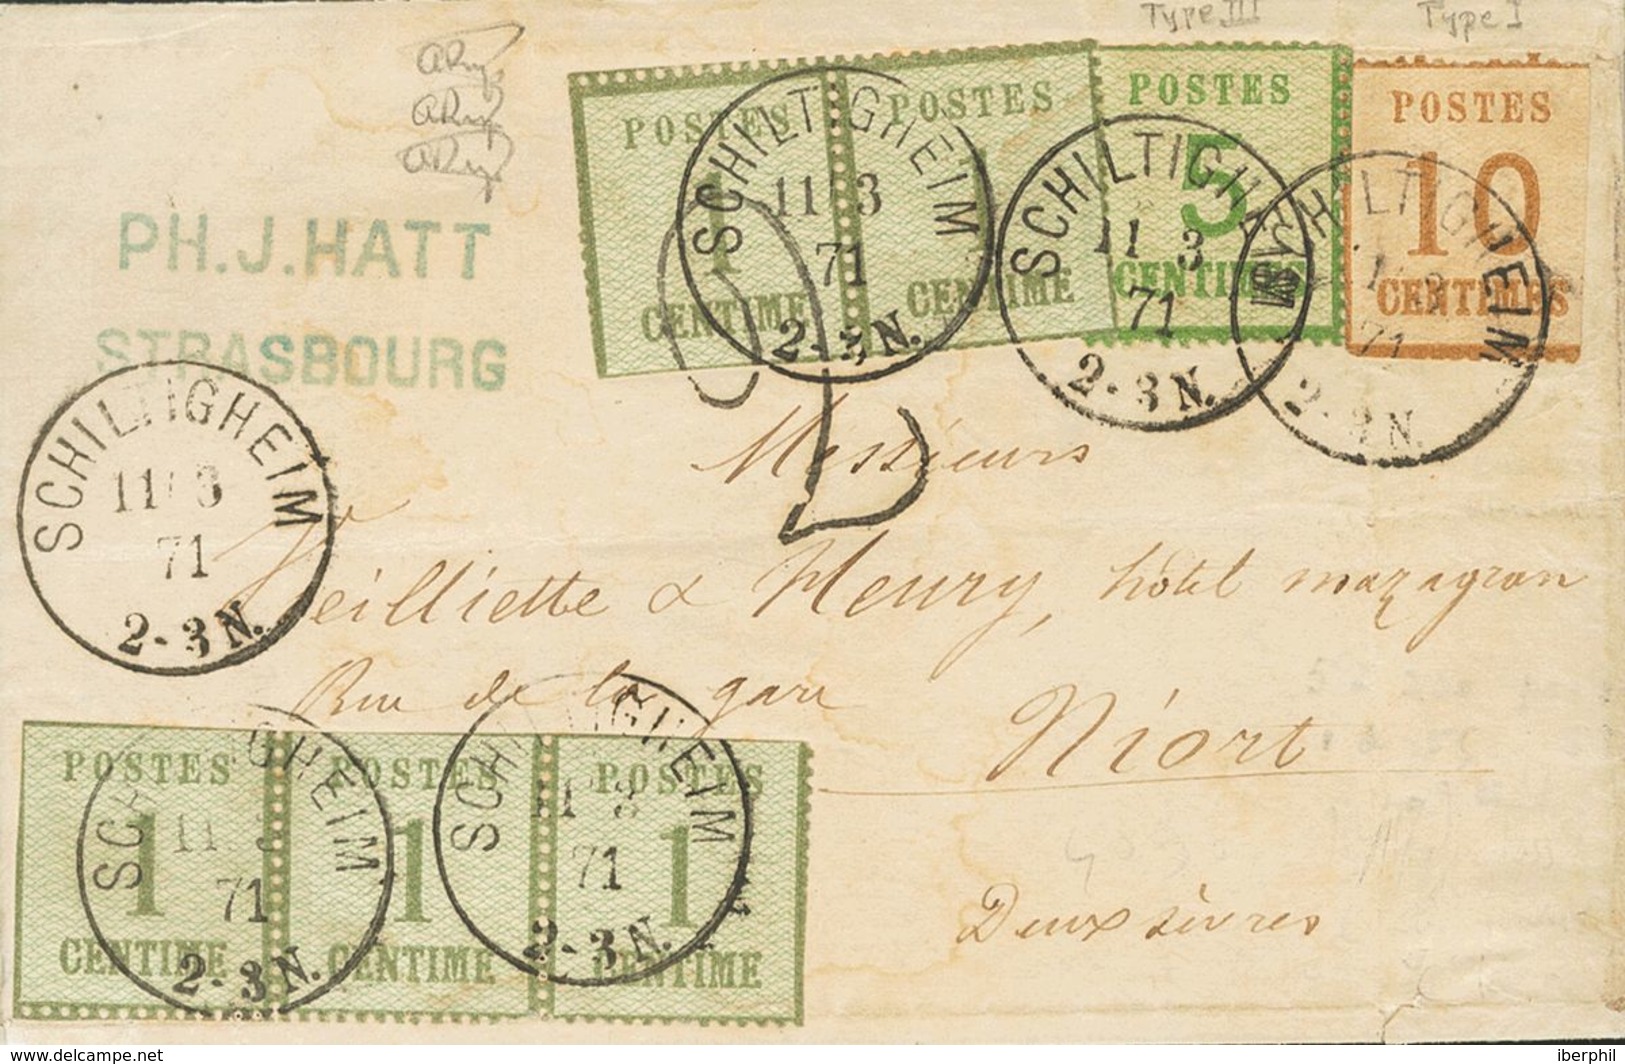 Type III
Type I
POSTES
1
CENTIME
POSTES
1
CENTIME
POSTES
5
CENTIMES
POSTES
10
CENTIMES
SCHILTIGHEIM
11 3
71
2-3N.
SCHILTIGHEIM
11 3
71
2-3N.
SCHILTIGHEIM
11 3
71
2-3N.
PH.J.HATT
STRASBOURG
SCHILTIGHEIM
11 3
71
2-3N.
2
Messieurs
& Heury, hôtel mazagran
Rue de la gare
Niort
Deux sèvres
POSTES
1
CENTIME
POSTES
1
CENTIME
POSTES
1
CENTIME
SCHILTIGHEIM
11 3
71
2-3N.
SCHILTIGHEIM
11 3
71
2-3N.
www.delcampe.net
iberphil